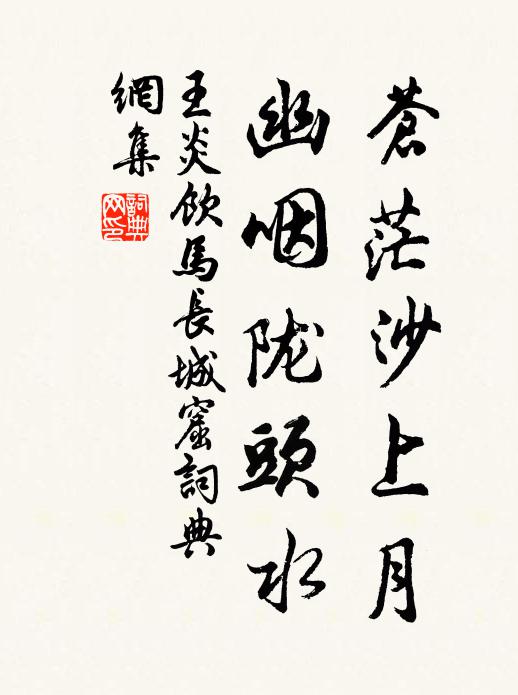 蒼茫沙上月
幽咽陇頭水
王炎飲馬長城窟詞典
網集
詞典网印